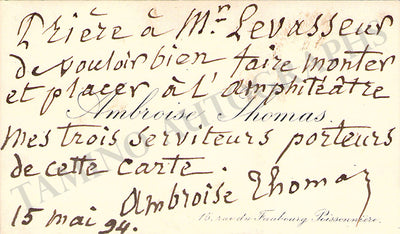 Prière à Mr Levasseur
de vouloir bien faire monter
et placer à l'amphitéâtre
Ambroise Thomas.
mes trois serviteurs porteurs
de cette carte.
Ambroise Thomas
15 mai 94.
15, rue du Faubourg Poissonnière.
TAMINO AUTOGRAPHS